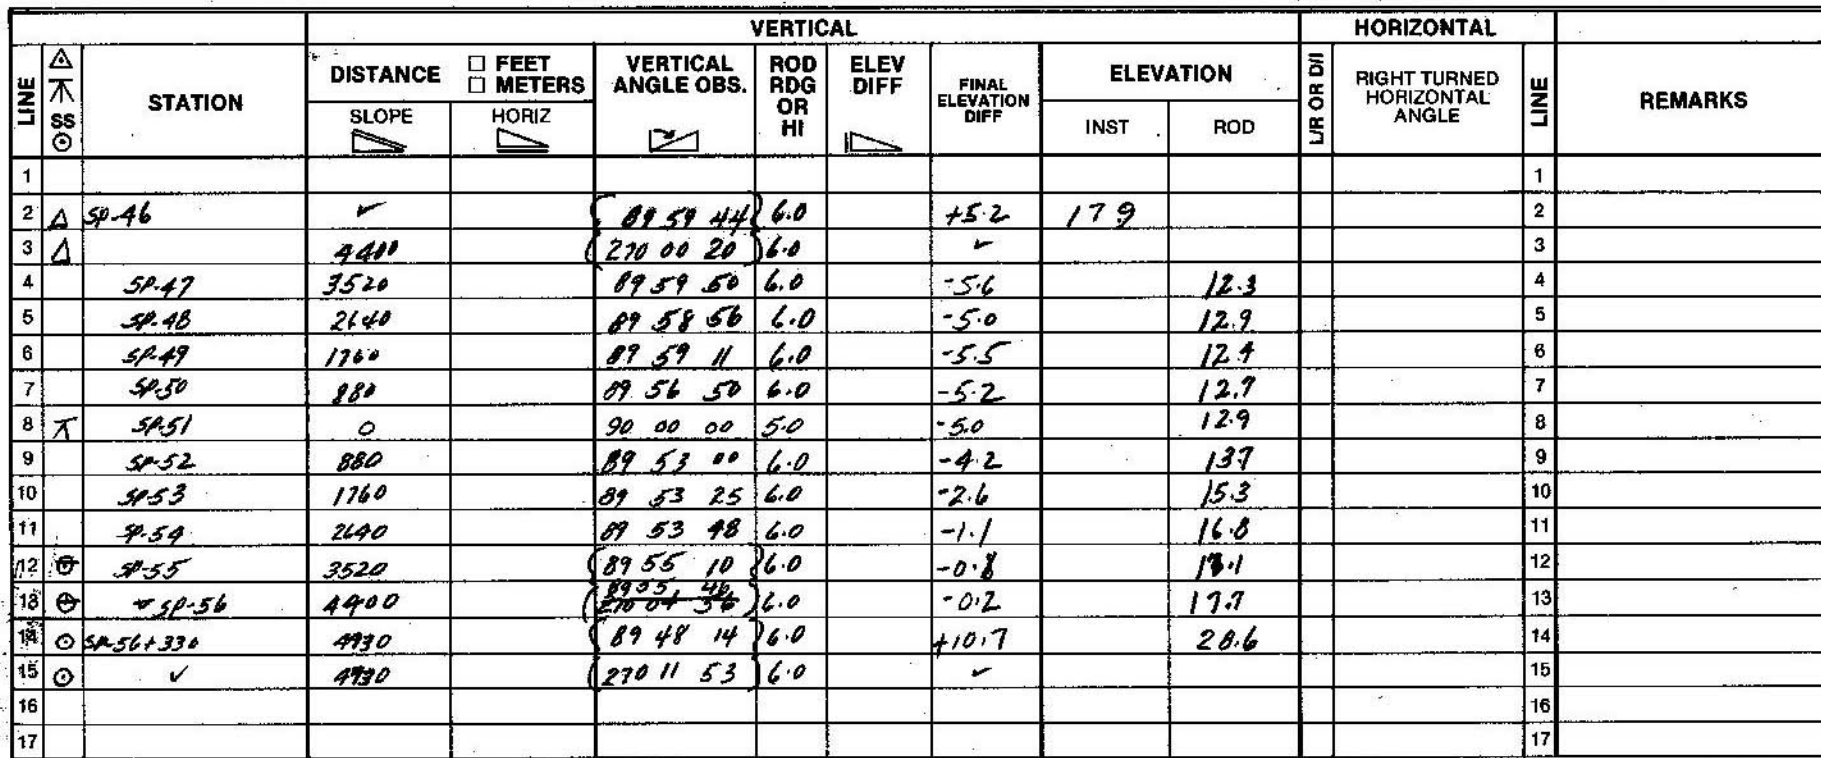 VERTICAL HORIZONTAL
LINE SS STATION DISTANCE □ FEET □ METERS VERTICAL ANGLE OBS. ROD RDG OR HI ELEV DIFF FINAL ELEVATION DIFF ELEVATION L/R OR D/I RIGHT TURNED HORIZONTAL ANGLE LINE REMARKS
SLOPE HORIZ INST ROD
1 1
2 △ SP-46 ✓ 89 59 44 6.0 +5.2 17.9 2
3 △ 4400 270 00 20 6.0 ✓ 3
4 SP-47 3520 89 59 50 6.0 -5.6 12.3 4
5 SP-48 2640 89 58 56 6.0 -5.0 12.9 5
6 SP-49 1760 89 59 11 6.0 -5.5 12.4 6
7 SP-50 880 89 56 50 6.0 -5.2 12.7 7
8 SP-51 0 90 00 00 5.0 -5.0 12.9 8
9 SP-52 880 89 53 00 6.0 -4.2 13.7 9
10 SP-53 1760 89 53 25 6.0 -2.6 15.3 10
11 SP-54 2640 89 53 48 6.0 -1.1 16.8 11
12 SP-55 3520 89 55 10 6.0 -0.8 17.1 12
13 SP-56 4400 89 55 46 270 04 56 6.0 -0.2 17.7 13
14 ⊙ SP-56+330 4730 89 48 14 6.0 +10.7 28.6 14
15 ⊙ ✓ 4730 270 11 53 6.0 ✓ 15
16 16
17 17